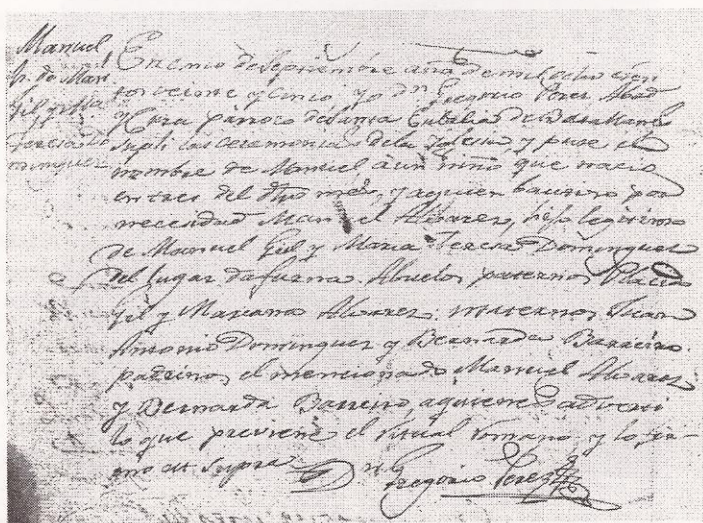 Manuel
h. de Man.
Gil y Ma
Teresa Do
minguez
En cinco de Septiembre año de mil ochocien
tos veinte y cinco, yo dn. Gregorio Perez Abad
y Cura párroco de Santa Eulalia de
supli las ceremonias de la Iglesia, y puse el
nombre de Manuel, à un niño que nacio
en tres del dho mes, y aquien bautizo por
necesidad Manuel Alvarez, hijo legitimo
de Manuel Gil y Maria Teresa Dominguez
del lugar da furna. Abuelos paternos Placido
Gil y Mariana Alvarez: maternos Juan
Antonio Dominguez y Bernarda Barreiro.
padrinos el mencionado Manuel Alvarez
y Bernarda Barreiro, aquienes adverti
lo que previene el ritual romano, y lo fir-
mo ut supra.
Dn. Gregorio Perez